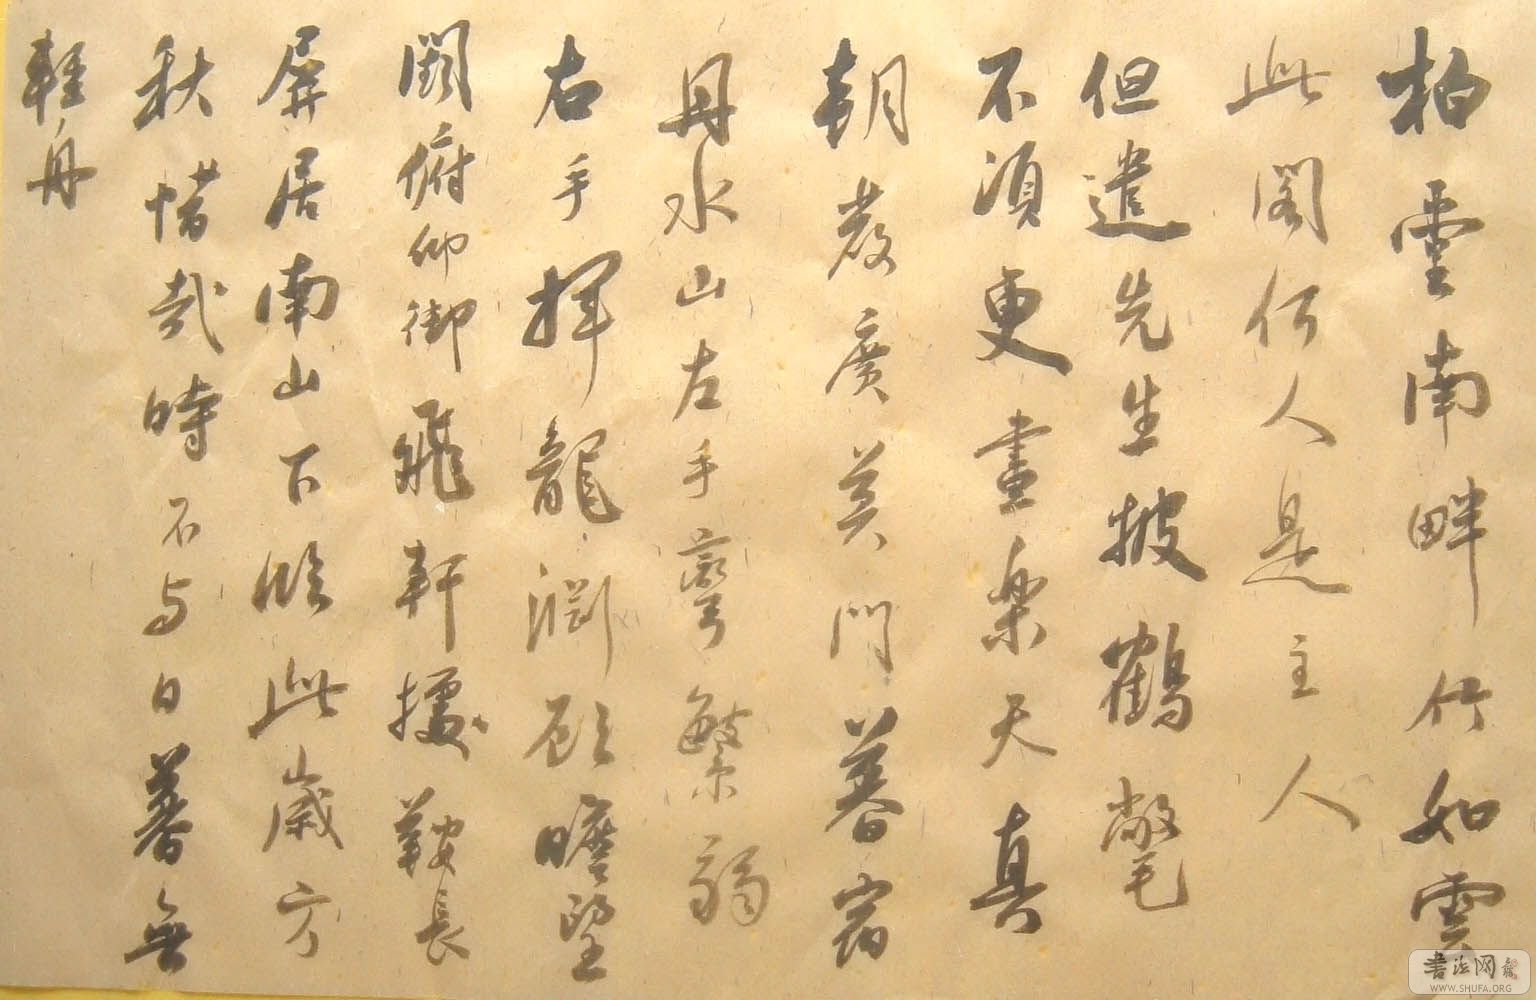 柏堂南畔竹如雲
此閣何人是主人
但遣先生披鶴氅
不須更畫楽天真
朝發廣莫門暮宿
丹水山左手彎繁弱
右手揮龍淵顧瞻望
闕俯仰御飛軒據鞍長
屏居南山下臨此歲方
秋惜哉時不与日暮無
輕舟
书法网
WWW.SHUFA.ORG